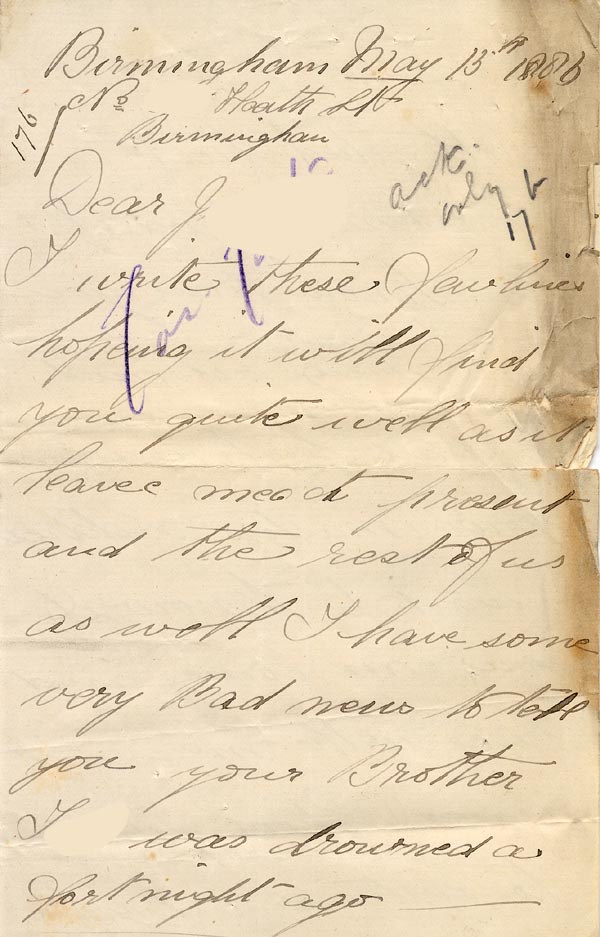 Birmingham May 15th 1886
No Heath St
Birmingham
176
Dear J
ack.
only
17
I write these few lines
hopeing it will find
you quite well as it
leavee me at present
and the rest of us
as well I have some
very Bad news to tell
you your Brother
I was drowned a
fort night ago